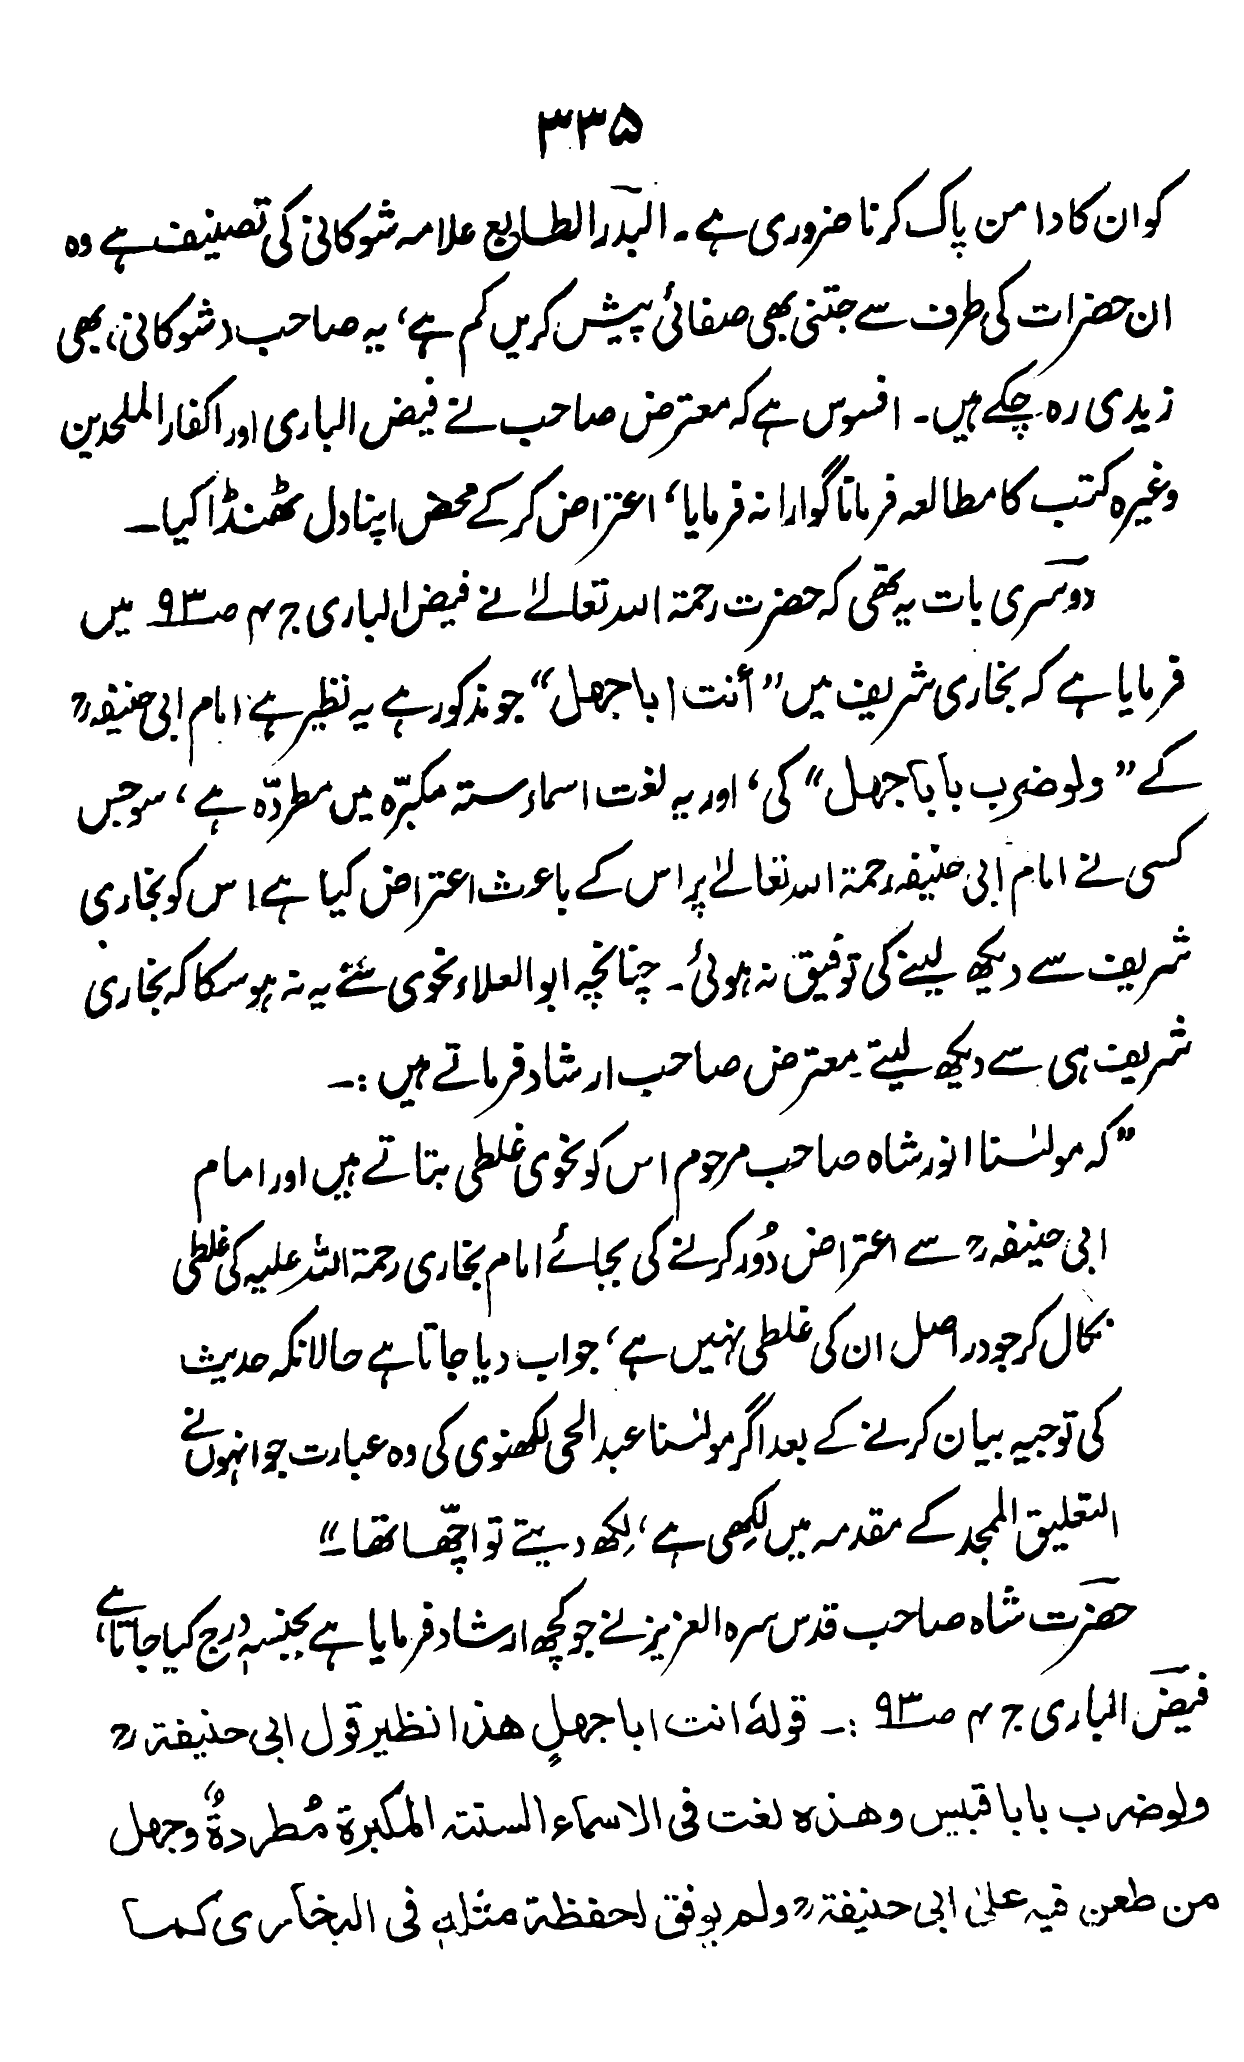 ۳۳۵
کو ان کا دامن پاک کرنا ضروری ہے۔ البدر الطالع علامہ شوکانی کی تصنیف ہے وہ
ان حضرات کی طرف سے جتنی بھی صفائی پیش کریں کم ہے، یہ صاحب (شوکانی) بھی
زیدی رہ چکے ہیں۔ افسوس ہے کہ معترض صاحب نے فیض الباری اور اکفار الملحدین
وغیرہ کتب کا مطالعہ فرمانا گوارا نہ فرمایا، اعتراض کر کے محض اپنا دل ٹھنڈا کیا۔
دوسری بات یہ تھی کہ حضرت رحمۃ اللہ تعالےٰ نے فیض الباری ج ۴ صـ ۹۳ میں
فرمایا ہے کہ بخاری شریف میں ”أنت ابا جھل“ جو مذکور ہے یہ نظیر ہے امام ابی حنیفہؒ
کے ”ولو ضرب بابا جھل“ کی، اور یہ لغت اسماء ستہ مکبّرہ میں مطردّہ ہے، سو جس
کسی نے امام ابی حنیفہ رحمۃ اللہ تعالےٰ پر اس کے باعث اعتراض کیا ہے اس کو بخاری
شریف سے دیکھ لینے کی توفیق نہ ہوئی۔ چنانچہ ابو العلاء نحوی سے یہ نہ ہو سکا کہ بخاری
شریف ہی سے دیکھ لیتے۔ معترض صاحب ارشاد فرماتے ہیں :۔
”کہ مولٰنا انور شاہ صاحب مرحوم اس کو نحوی غلطی بتاتے ہیں اور امام
ابی حنیفہؒ سے اعتراض دُور کرنے کی بجائے امام بخاری رحمۃ اللہ علیہ کی غلطی
نکال کر جو در اصل ان کی غلطی نہیں ہے، جواب دیا جاتا ہے حالانکہ حدیث
کی توجیہ بیان کرنے کے بعد اگر مولٰنا عبد الحی لکھنوی کی وہ عبارت جو انہوں نے
التعلیق الممجد کے مقدمہ میں لکھی ہے، لکھ دیتے تو اچّھا تھا۔“
حضرت شاہ صاحب قدس سرہ العزیز نے جو کچھ ارشاد فرمایا ہے بجنسہٖ درج کیا جاتا ہے،
فیض الباری ج ۴ صـ ۹۳ :۔ قولہٗ انت ابا جھلٍ ھذا نظیر قول ابی حنیفۃؒ
ولو ضرب بابا قبیس وھذہ لغت فی الاسماء الستتہ المکبرۃ مُطردۃٌ، وجھل
من طعن فیہ علیٰ ابی حنیفۃؒ ولم یوفق لحفظۃ مثلہٖ فی البخاری کما